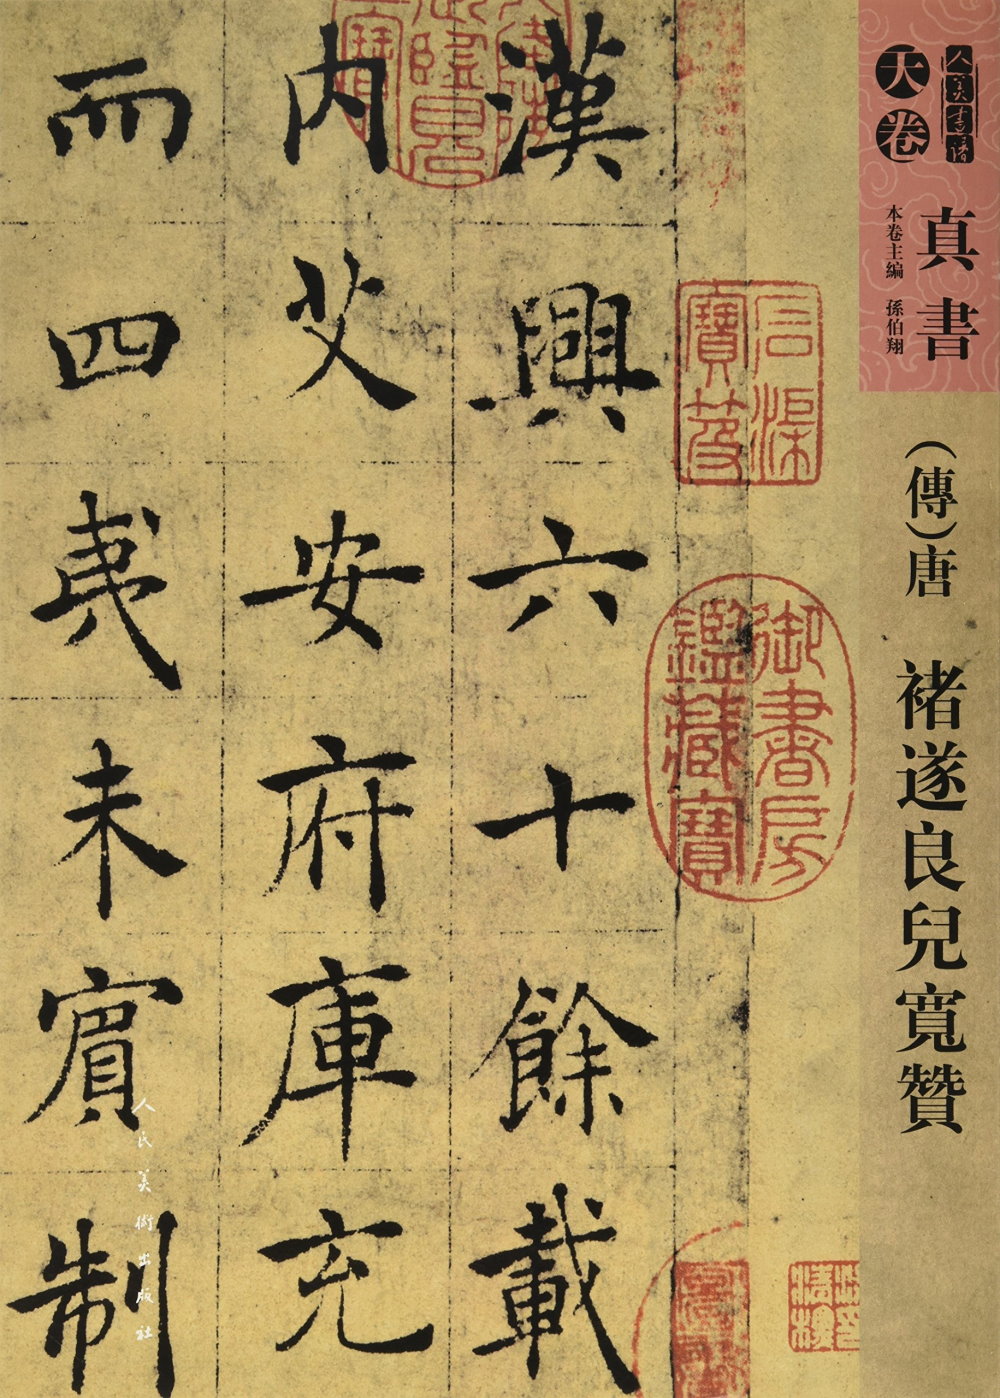 人美書譜
天卷
真書
本卷主編 孫伯翔
(傳)唐 褚遂良兒寬贊
石渠
寶笈
御書房
鑑藏寶
漢興六十餘載
內艾安府庫充
而四夷未賓制
人民美術出版社